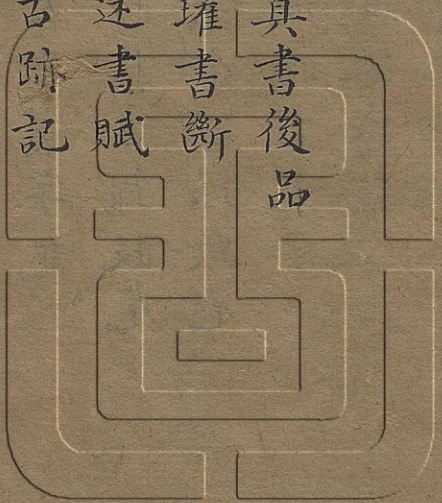 真書後品
瓘書斷
述書賦
古跡記